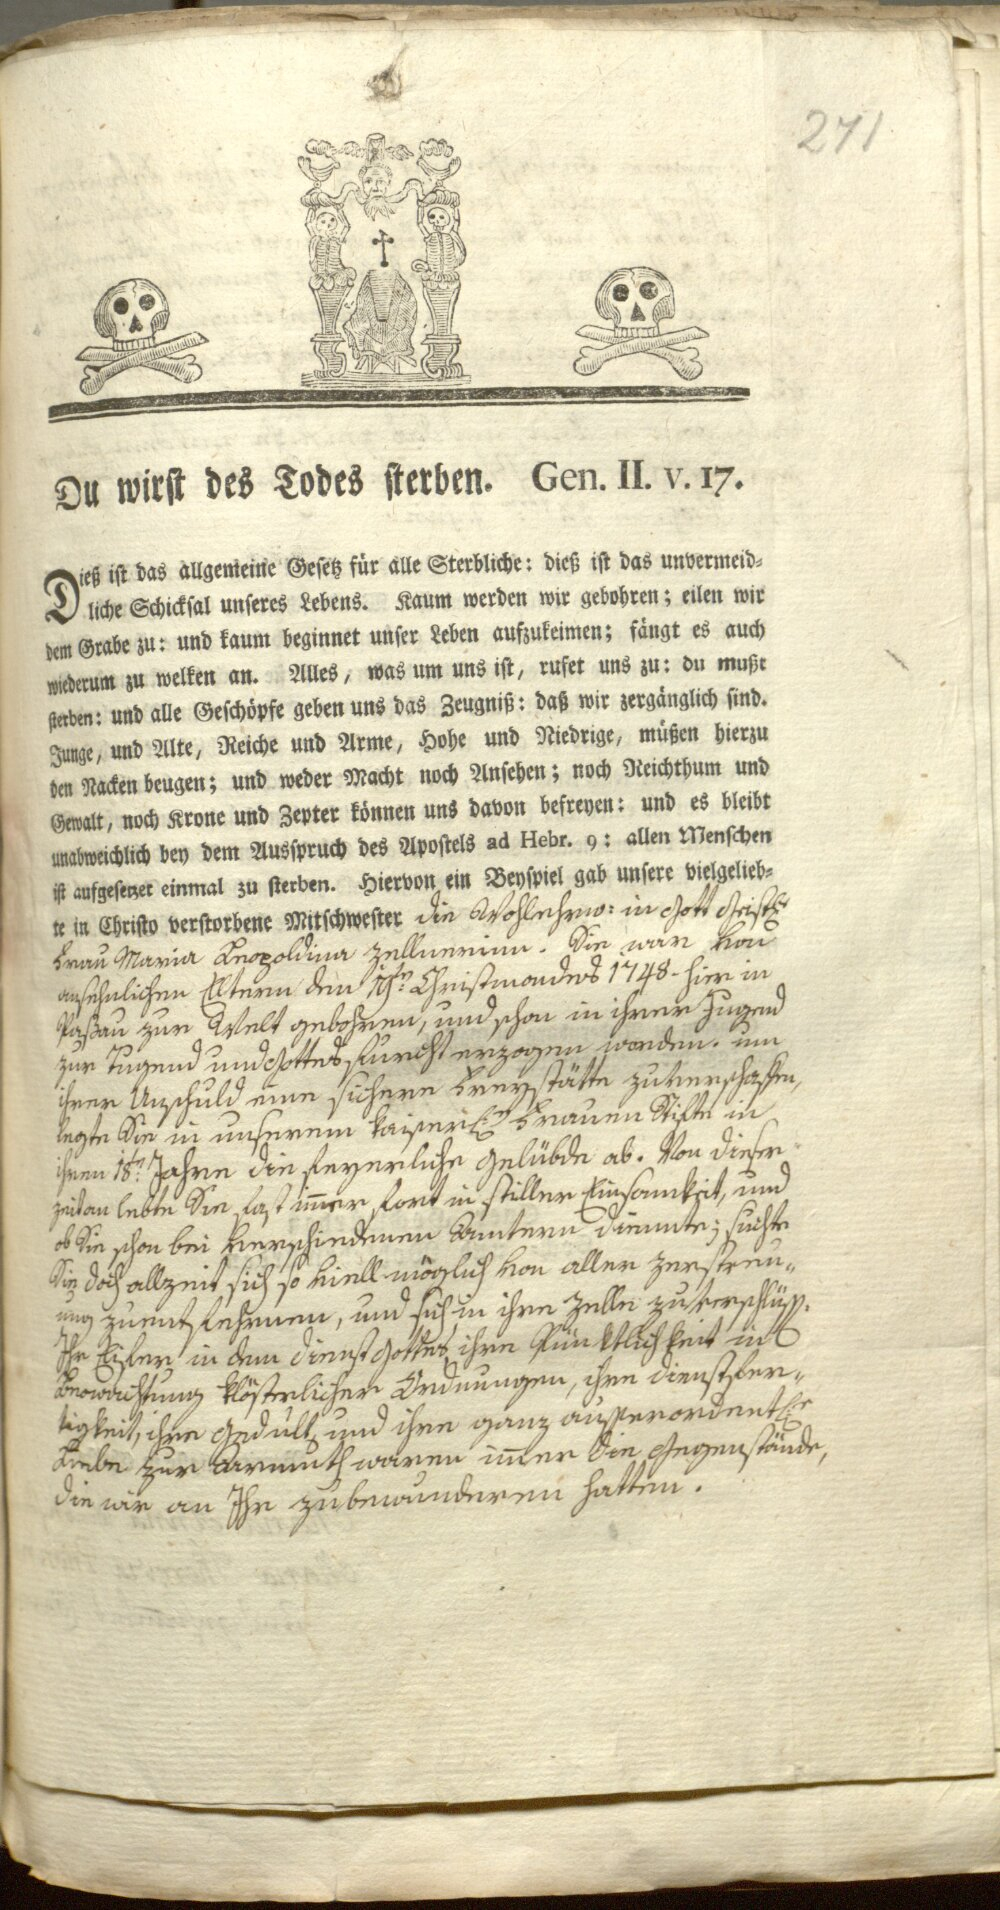 271
Du wirst des Todes sterben. Gen. II. v. 17.
Dieß ist das allgemeine Gesetz für alle Sterbliche: dieß ist das unvermeid-
liche Schicksal unseres Lebens. Kaum werden wir gebohren; eilen wir
dem Grabe zu: und kaum beginnet unser Leben aufzukeimen; fängt es auch
wiederum zu welken an. Alles, was um uns ist, rufet uns zu: du mußt
sterben: und alle Geschöpfe geben uns das Zeugniß: daß wir zergänglich sind.
Junge, und Alte, Reiche und Arme, Hohe und Niedrige, müßen hierzu
den Nacken beugen; und weder Macht noch Ansehen; noch Reichthum und
Gewalt, noch Krone und Zepter können uns davon befreyen: und es bleibt
unabweichlich bey dem Ausspruch des Apostels ad Hebr. 9: allen Menschen
ist aufgesetzet einmal zu sterben. Hiervon ein Beyspiel gab unsere vielgelieb-
te in Christo verstorbene Mitschwester die Wohlehrw: in Gott Geistl:
Frau Maria Leopoldina Zellnerinn. Sie war von
ansehnlichen Eltern den Christmonders 1748 hier in
Paßau zur Welt gebohren, und schon in ihrer Jugend
zur Tugend und Gottesfurcht erzogen worden. um
ihrer Unschuld eine sichere Freystätte zuverschaffen,
legte Sie in unserem kaiserl: Frauen Stifte in
ihren 18tn Jahre die feyerliche Gelübde ab. Von dieser
zeit an lebte Sie fast im̅er fort in stiller Einsamkeit, und
ob Sie schon bei verschiedenen Aemtern diennte; suchte
Sie doch allzeit sich so viell möglich von aller zerstreu-
ung zuentfehrnen, und sich in ihre Zelle zuverschlüss.
Ihr Eifer in dem dienst Gottes, ihre Pünktlichkeit in
Beowachtung klösterlicher Ordnungen, ihre dienstfer-
tigkeit, ihre Gedult, und ihre ganz ausserordentl:e
Liebe zur Armuth waren im̅er die Gegenstände,
die wir an Ihr zubewunderen hatten.